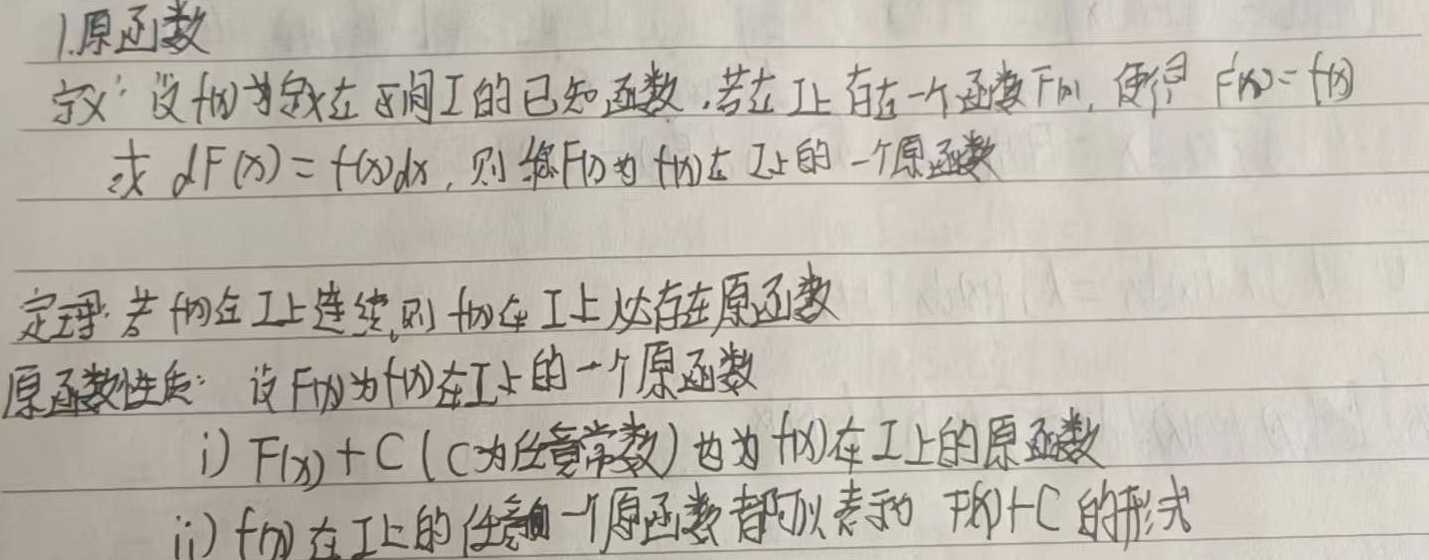 1.原函数
定义:设f(x)为定义在区间I的已知函数,若在I上存在一个函数F(x),使得F'(x)=f(x)
或dF(x)=f(x)dx,则称F(x)为f(x)在I上的一个原函数
定理:若f(x)在I上连续,则f(x)在I上必存在原函数
原函数性质:设F(x)为f(x)在I上的一个原函数
i) F(x)+C(C为任意常数)也为f(x)在I上的原函数
ii) f(x)在I上的任意一个原函数都可以表示为F(x)+C的形式